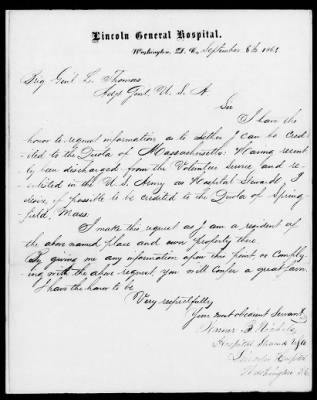 Lincoln General Hospital.
Washington, D. C., September 8th 186
Brig Genl L. Thomas
Adjt Genl. U. S. A
Sir
I have the
honor to request information as to whether I can be Cred-
ited to the Quota of Massachusetts: Having recent
ly been discharged from the Volunteer Service and re-
listed in the U.S. Army as Hospital Steward, I
desire if possible to be credited to the Quota of Spring-
field, Mass.
I make this request as I am a resident of
the above named place and own property there
By giving me any information upon this point or Comply-
ing with the above request you will confer a great favor.
I have the honor to be
Very respectfully
Your most obedient Servant
Hospital Steward USA
Lincoln Hospital
Washington D.C.